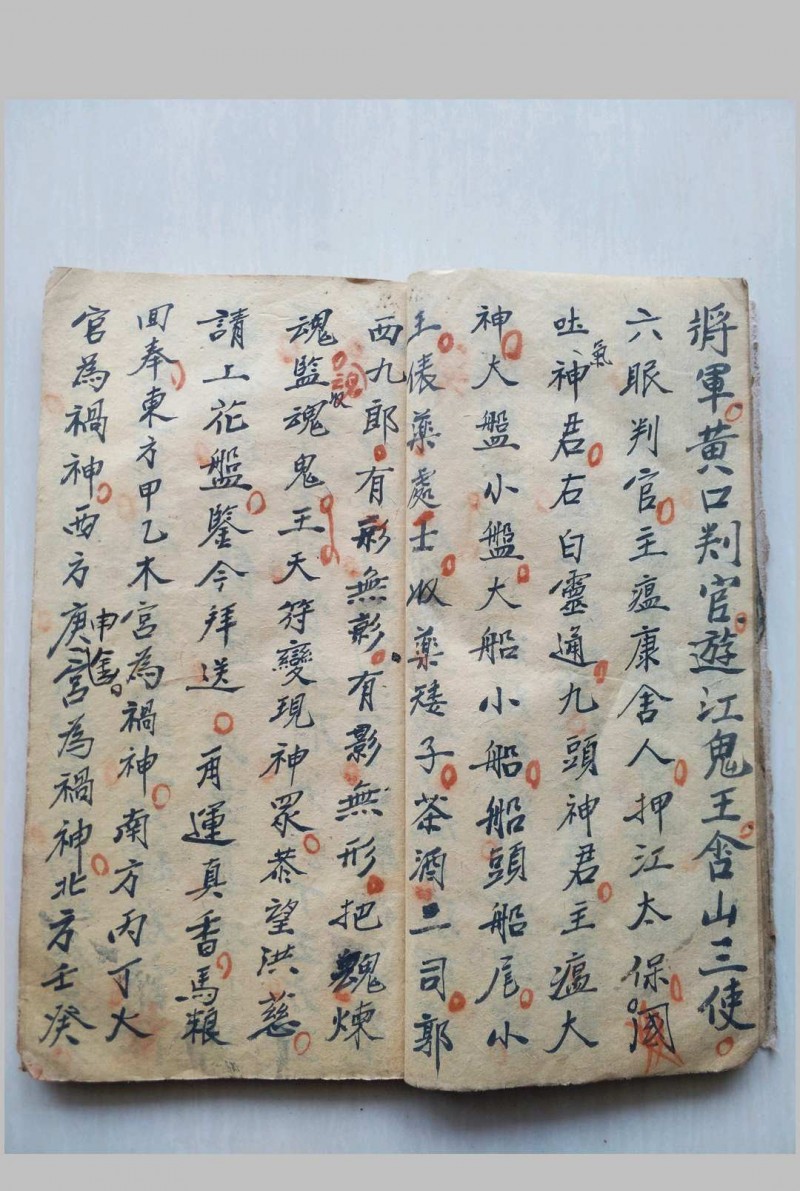 將軍黄口判官遊江鬼王含山三使
六眼判官主瘟康舍人押江太保
吐氣神君右白靈通九頭神君主瘟大
神大盤小盤大船小船船頭船尾小
王俵藥處士收藥矮子茶酒二司郭
西九郎有形無影有影無形把魂煉
魂收魂監魂鬼王天符變現神眾恭望洪慈
請上花盤鑒今拜送再運真香馬粮
回奉東方甲乙木宮為禍神南方丙丁火
宮為禍神西方庚申金宮為禍神北方壬癸